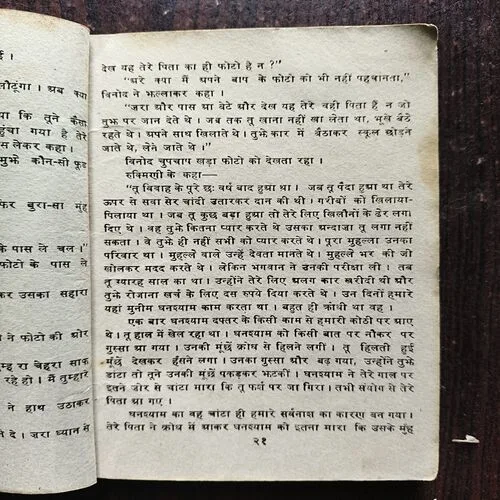 ई ।
लौटूंगा । अब क्या
या कि तूने कैसा
हुंचा गया है तेरे
स लेकर कहा ।
मुझे कौन-सी फूट
फिर बुरा-सा मुंह
के पास ले चल ।"
फोटो के पास ले
कर उसका सहारा
ने फोटो की ओर
तुम्हारा चेहरा साफ
रहे हो । मैं तुम्हारे
ने हाथ उठाकर
ते दे । ज़रा ध्यान से
देख यह तेरे पिता का ही फोटो है न ?"
"अरे क्या मैं अपने बाप के फोटो को भी नहीं पहचानता,"
विनोद ने झल्लाकर कहा ।
"ज़रा और पास आ बेटे और देख यह तेरे वही पिता हैं न जो
तुझ पर जान देते थे । जब तक तू खाना नहीं खा लेता था, भूखे बैठे
रहते थे । अपने साथ खिलाते थे । तुझे कार में बैठाकर स्कूल छोड़ने
जाते थे, लेने जाते थे ।"
विनोद चुपचाप खड़ा फोटो को देखता रहा ।
रुक्मिणी के कहा—
"तू विवाह के पूरे छः वर्ष बाद हुआ था । जब तू पैदा हुआ था तेरे
ऊपर से सवा सेर चांदी उतारकर दान की थी । गरीबों को खिलाया-
पिलाया था । जब तू कुछ बड़ा हुआ तो तेरे लिए खिलौनों के ढेर लगा
दिए थे । वह तुझे कितना प्यार करते थे उसका अन्दाजा तू लगा नहीं
सकता । वे तुझे ही नहीं सभी को प्यार करते थे । पूरा मुहल्ला उनका
परिवार था । मुहल्ले वाले उन्हें देवता मानते थे । मुहल्ले भर की जी
खोलकर मदद करते थे । लेकिन भगवान ने उनकी परीक्षा ली । तब
तू ग्यारह साल का था । उन्होंने तेरे लिए अलग कार खरीदी थी और
तुझे रोजाना खर्च के लिए दस रुपये दिया करते थे । उन दिनों हमारे
यहां मुनीम घनश्याम काम करता था । बहुत ही क्रोधी था वह ।
एक बार घनश्याम दफ्तर के किसी काम से हमारी कोठी पर आए
थे । तू हाल में खेल रहा था । घनश्याम को किसी बात पर नौकर पर
गुस्सा आ गया । उनकी मूंछें क्रोध से हिलने लगीं । तू हिलती हुई
मूंछें देखकर हँसने लगा । उनका गुस्सा और बढ़ गया, उन्होंने तुझे
डांटा तो तूने उनकी मूंछें पकड़कर झटकीं । घनश्याम ने तेरे गाल पर
इतने ज़ोर से चांटा मारा कि तू फर्श पर जा गिरा । तभी संयोग से तेरे
पिता आ गए ।
घनश्याम का वह चांटा ही हमारे सर्वनाश का कारण बन गया ।
तेरे पिता ने क्रोध में आकर घनश्याम को इतना मारा कि उसके मुंह
२१